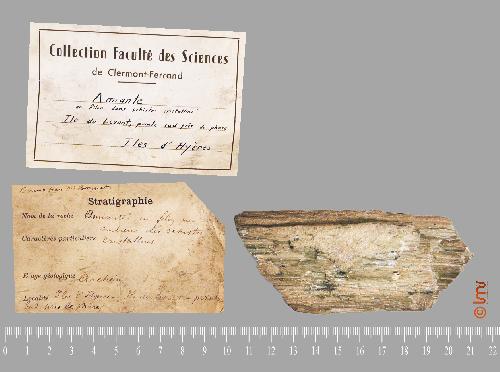 Collection Faculté des Sciences
de Clermont-Ferrand
Amiante
en filon dans schistes cristallins
Ile du Levant, pointe sud près du phare
Iles d'Hyères
Stratigraphie
Nom de la roche Amiante en filon au
milieu des schistes
Caractères particuliers cristallins
Etage géologique Archéen
Localité Iles d'Hyères
sud près du phare
0 1 2 3 4 5 6 7 8 9 10 11 12 13 14 15 16 17 18 19 20 21 22